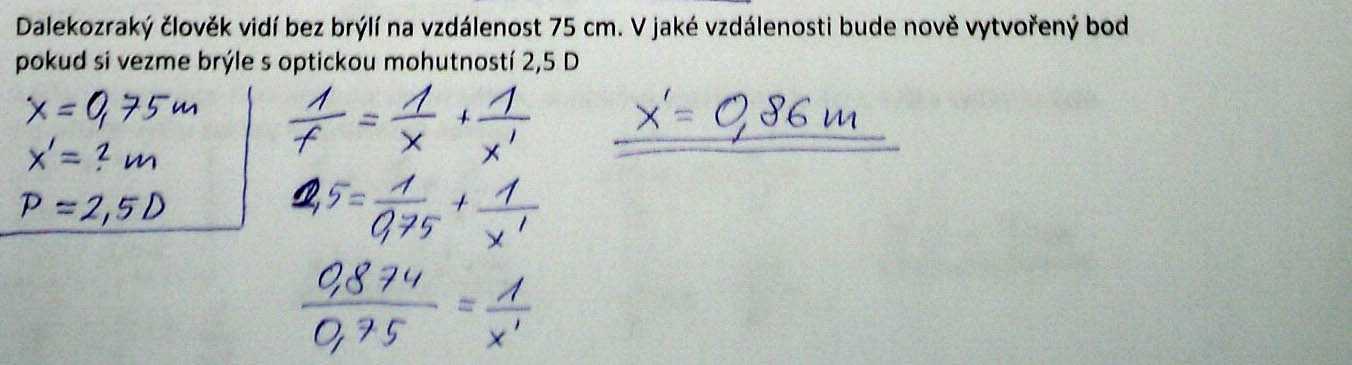 Dalekozraký člověk vidí bez brýlí na vzdálenost 75 cm. V jaké vzdálenosti bude nově vytvořený bod
pokud si vezme brýle s optickou mohutností 2,5 D
x = 0,75 m
x' = ? m
P = 2,5 D
1/f = 1/x + 1/x'
2,5 = 1/0,75 + 1/x'
0,874/0,75 = 1/x'
x' = 0,86 m